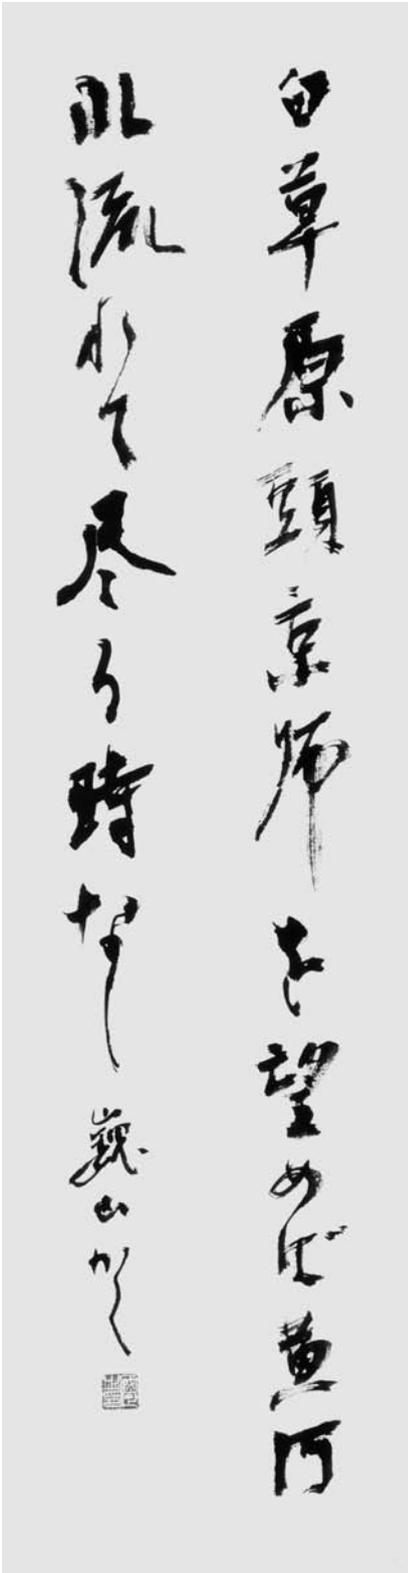 白草原頭京師を望めば黄河
水流れて尽る時なし 巍山かく